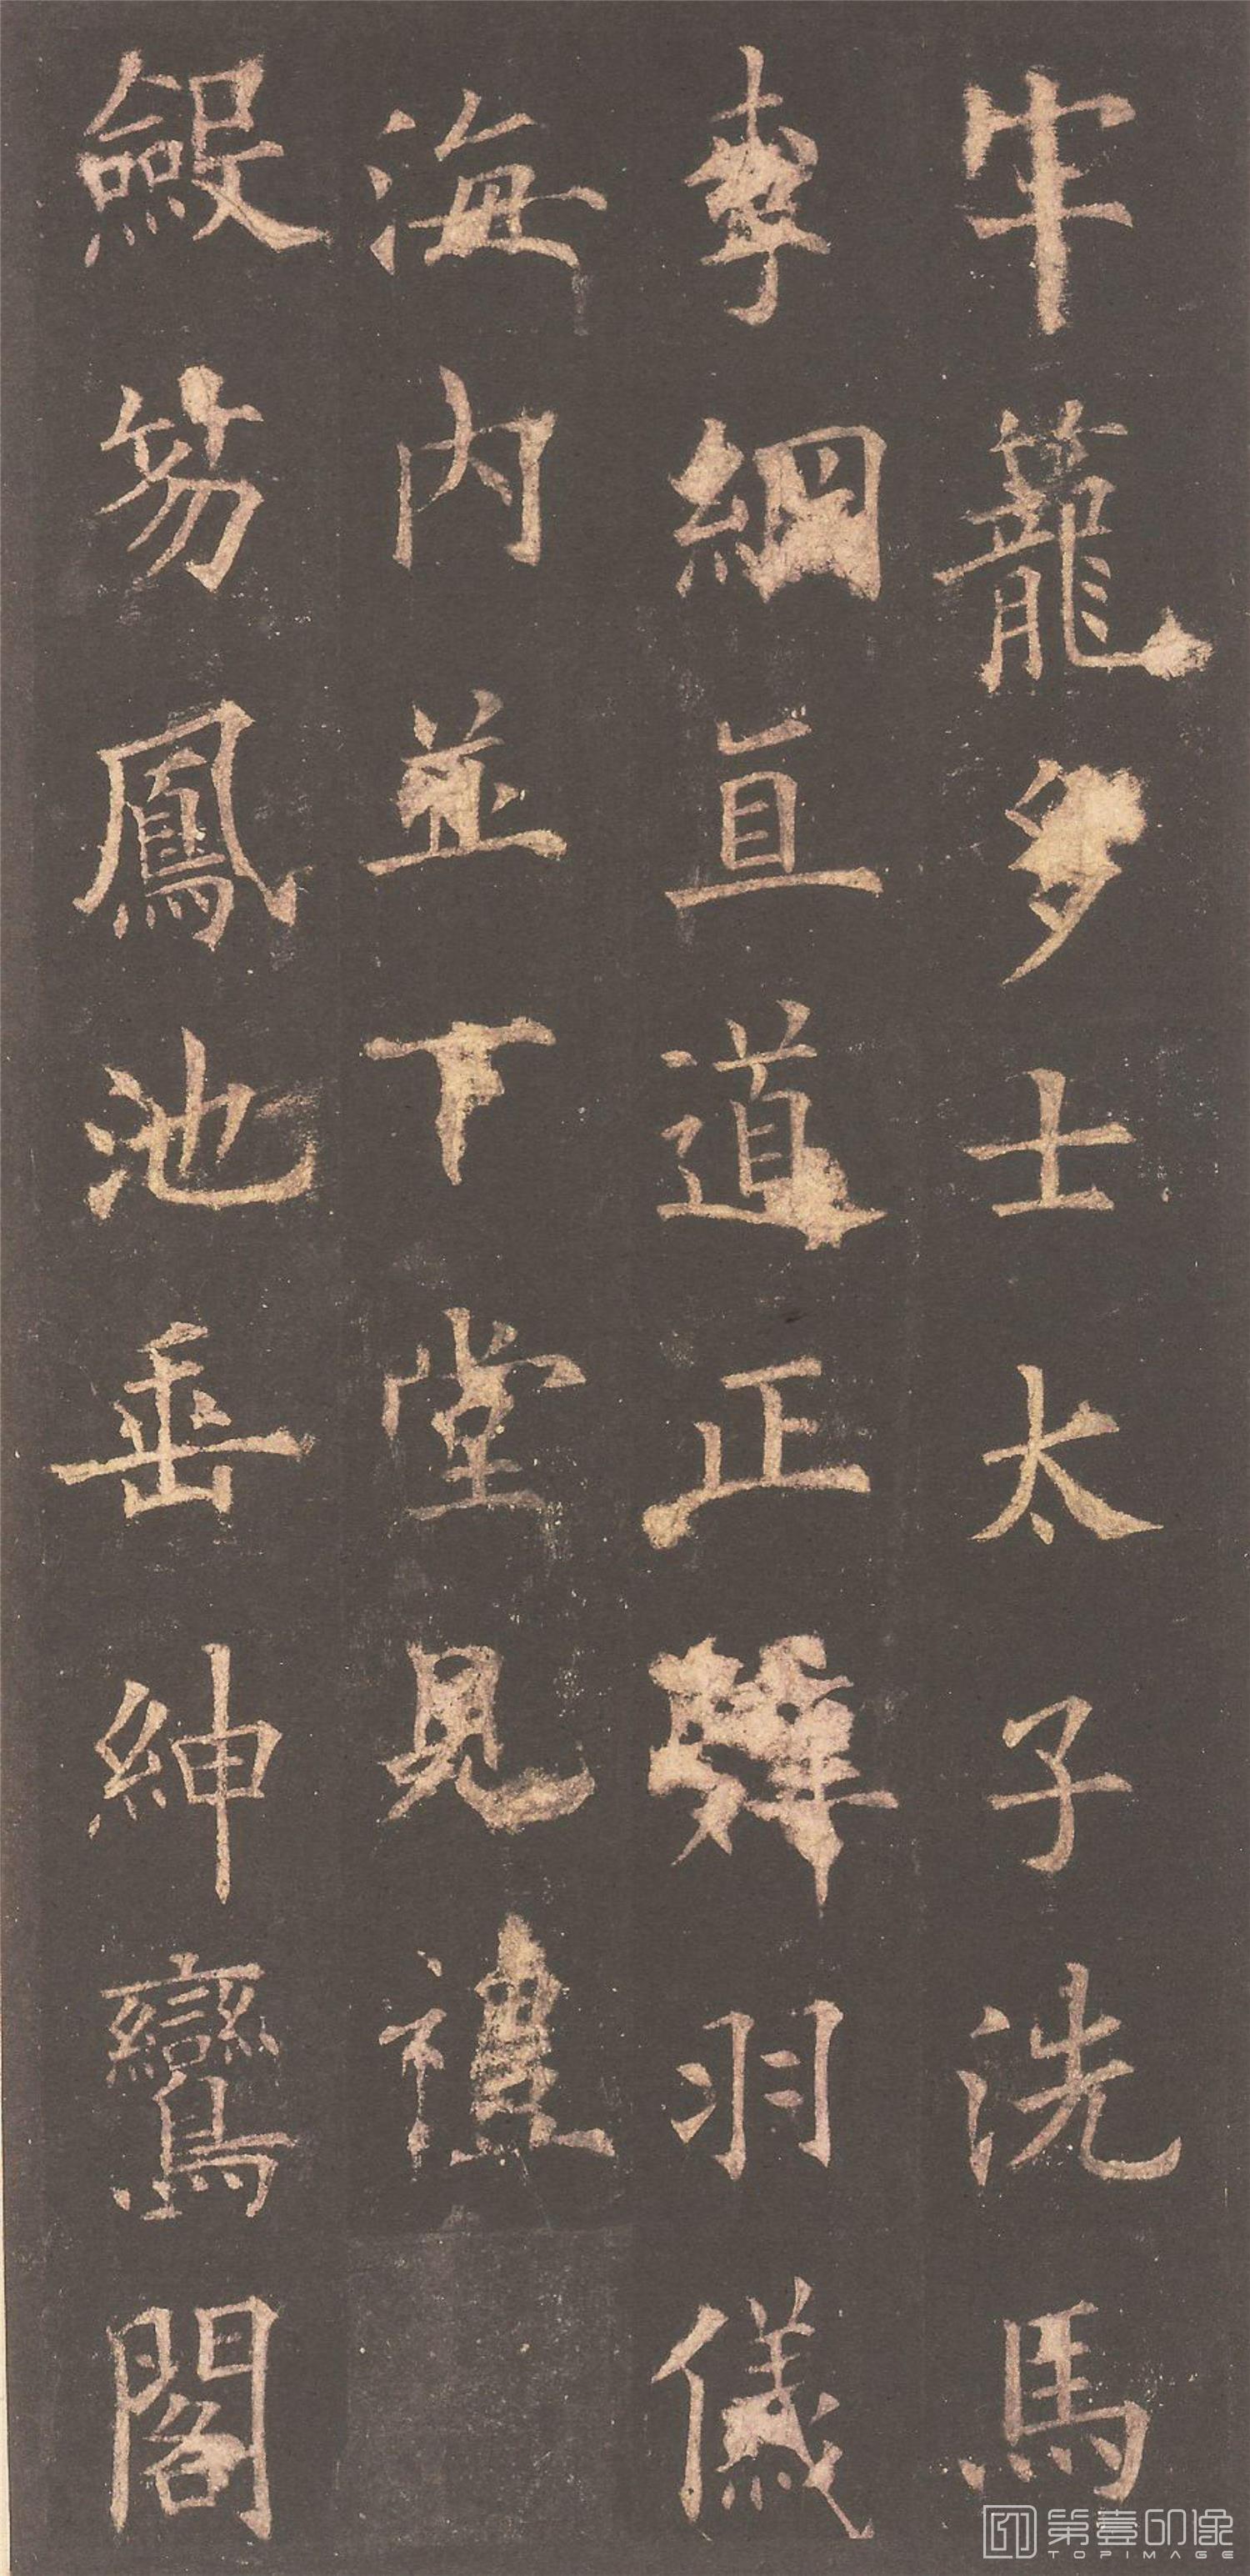 牢籠多士太子洗馬
李綱直道正辭羽儀
海內並下堂見禮
斂笏鳳池垂紳鸞閣
第壹印像
TOPIMAGE